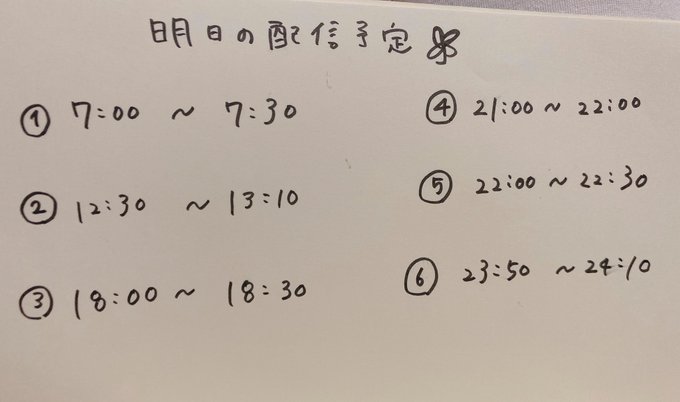 明日の配信予定
① 7:00 ~ 7:30
② 12:30 ~ 13:10
③ 18:00 ~ 18:30
④ 21:00 ~ 22:00
⑤ 22:00 ~ 22:30
⑥ 23:50 ~ 24:10